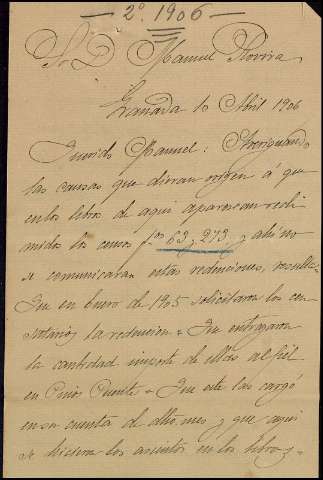 2º 1906
Sr. D. Manuel Rovira
Granada 10 Abril 1906
Querido Manuel: Averiguando
las causas que dieran origen á que
en los libros de aqui aparescan redi-
midos los censos fos 63 y 273, y ahi no
se comunicaran estas redenciones, resulta:
Que en Enero de 1905 solicitaron los cen-
satarios la redencion = Que entregaron
la cantidad importe de ellas al fiel
en Pinos Puente = Que este las cargó
en su cuenta de dho. mes y que aqui
se hicieron los asientos en los libros y =